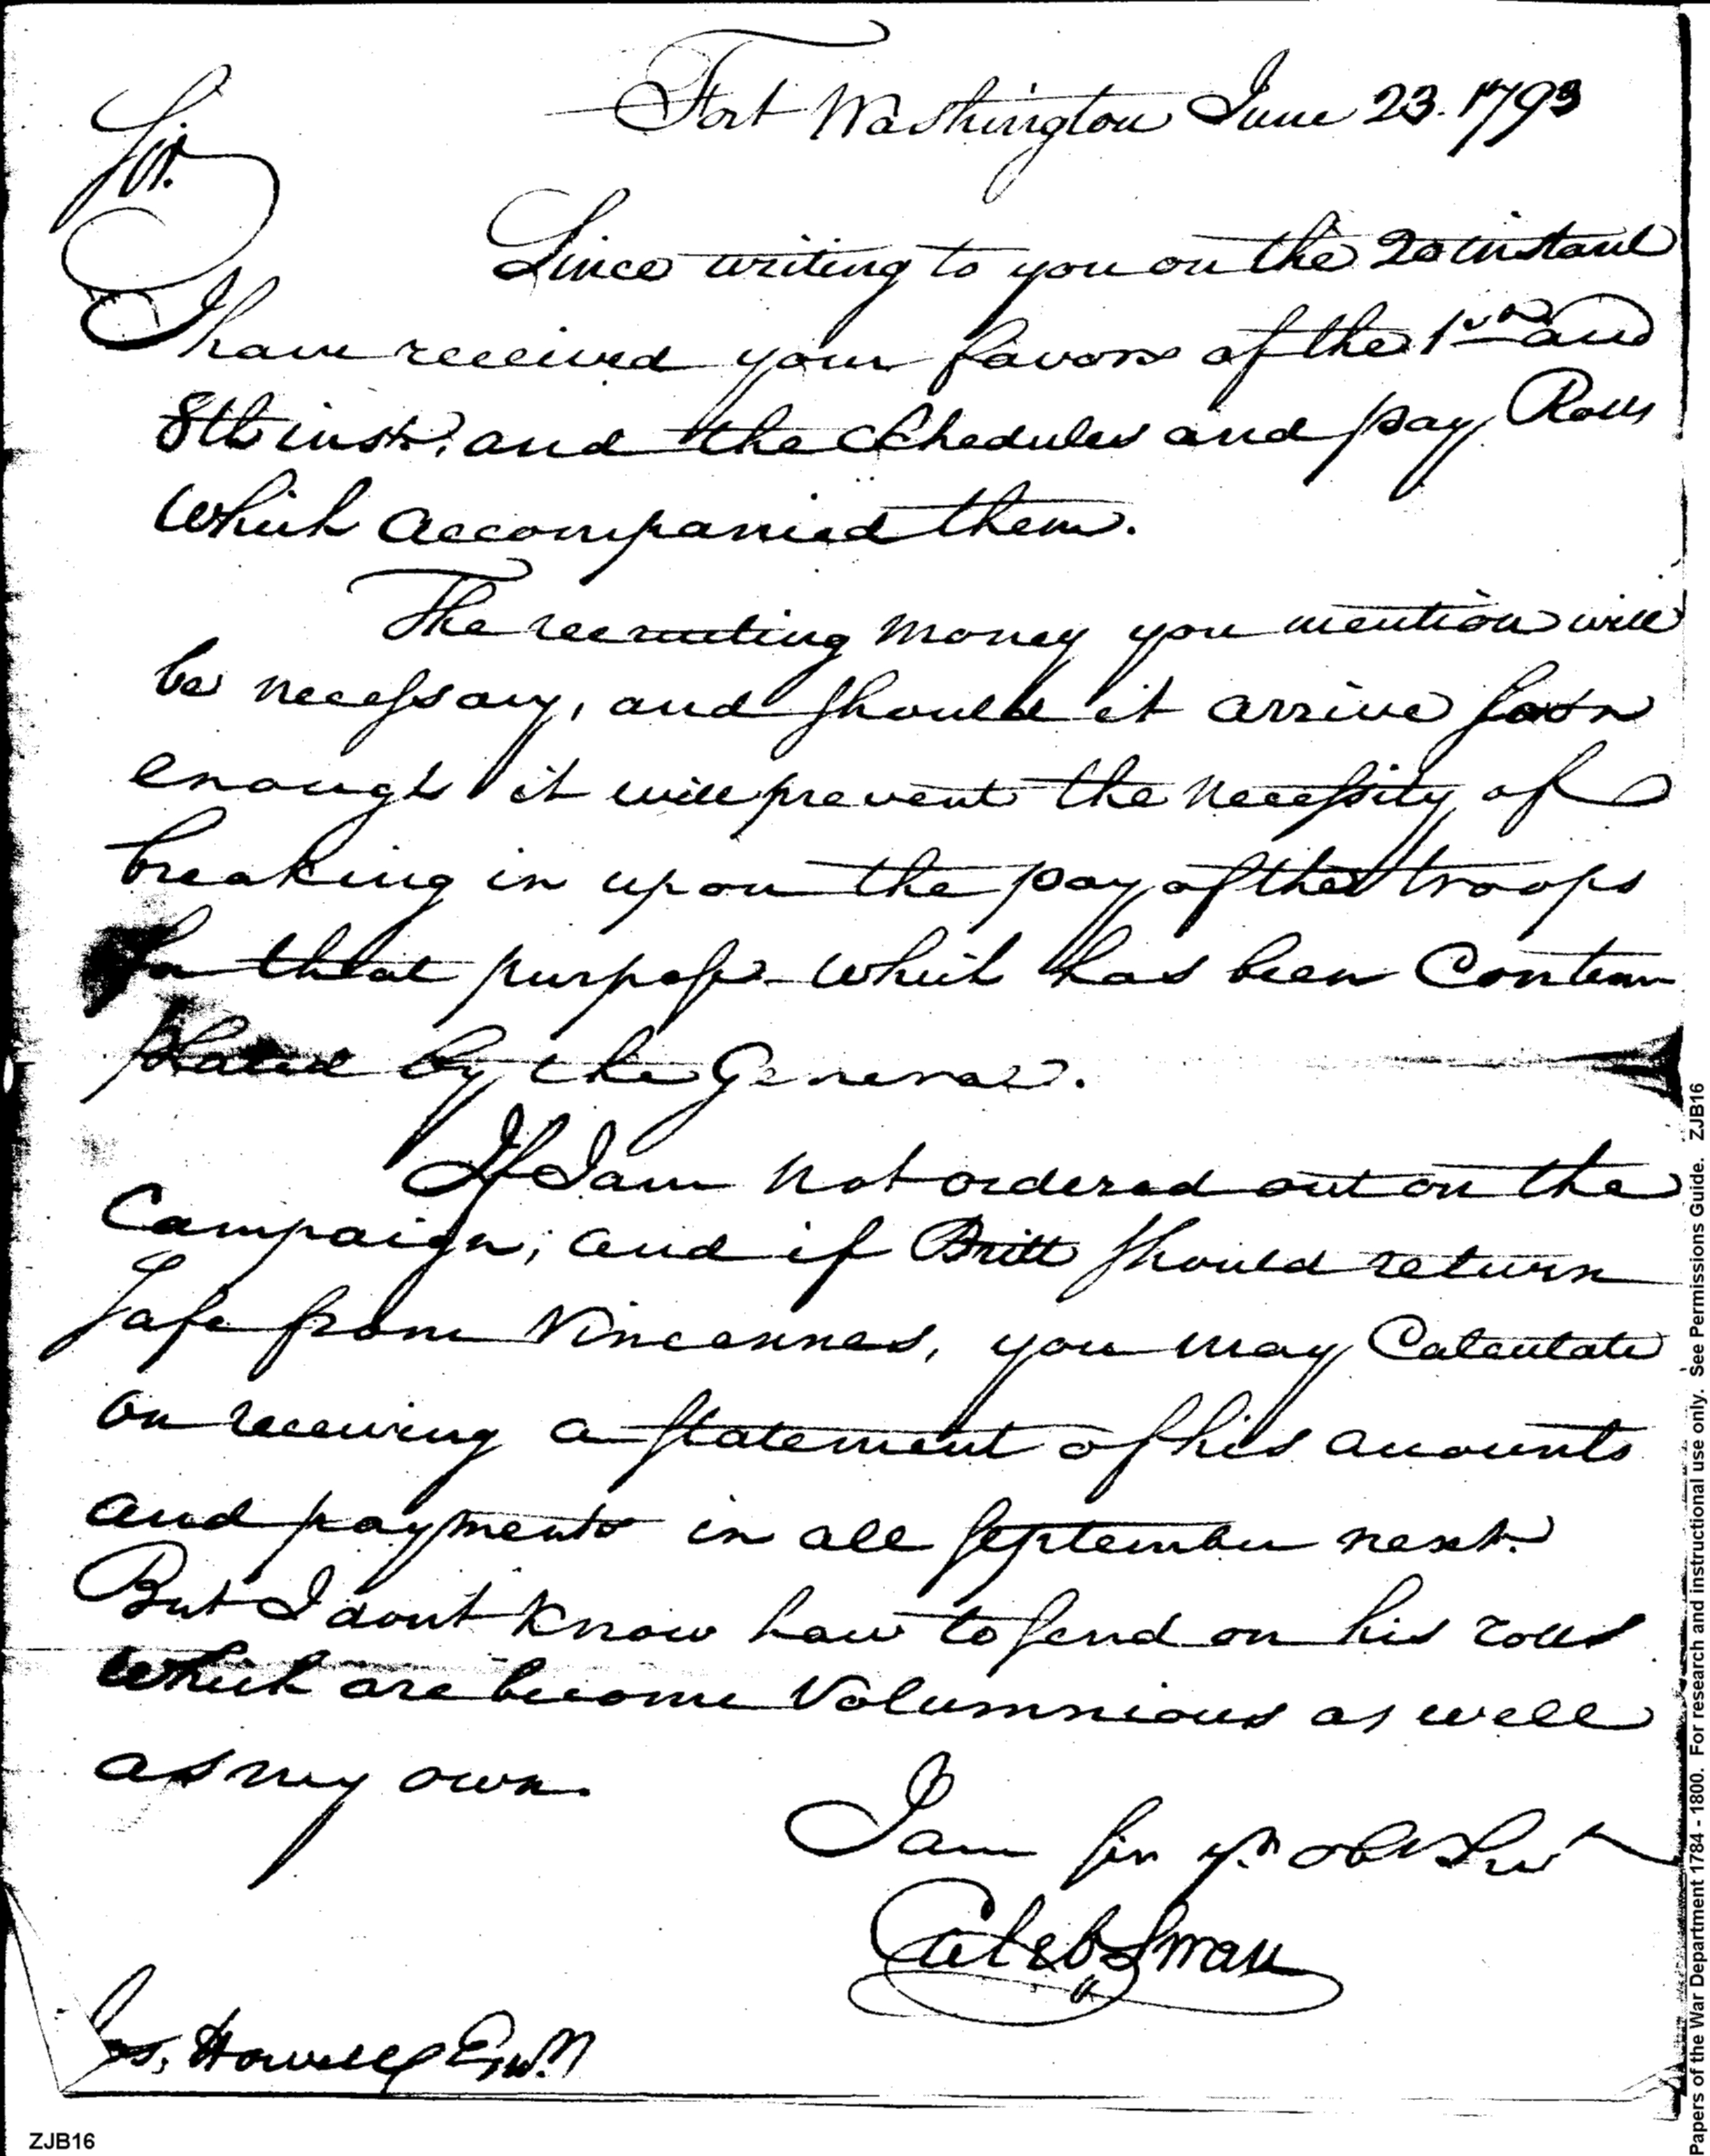 Fort Washington June 23. 1793
Sir.
Since writing to you on the 20 instant
I have received your favors of the 1st and
8th inst. and the Schedules and pay Rolls
which accompanied them.
The recruiting money you mention will
be necessary, and should it arrive soon
enough it will prevent the necessity of
breaking in upon the pay of the troops
for that purpose which has been Contem
plated by the General.
If I am not ordered out on the
Campaign; and if Britt should return
Safe from Vincennes, you may Calculate
on receiving a statement of his accounts
and payments in all September next.
But I dont know how to send on his rolls
which are become Volumnious as well
as my own.
I am sir yr obt Svt
Caleb Swan
Jos. Howell Esqr.
ZJB16
Papers of the War Department 1784 - 1800. For research and instructional use only. See Permissions Guide. ZJB16